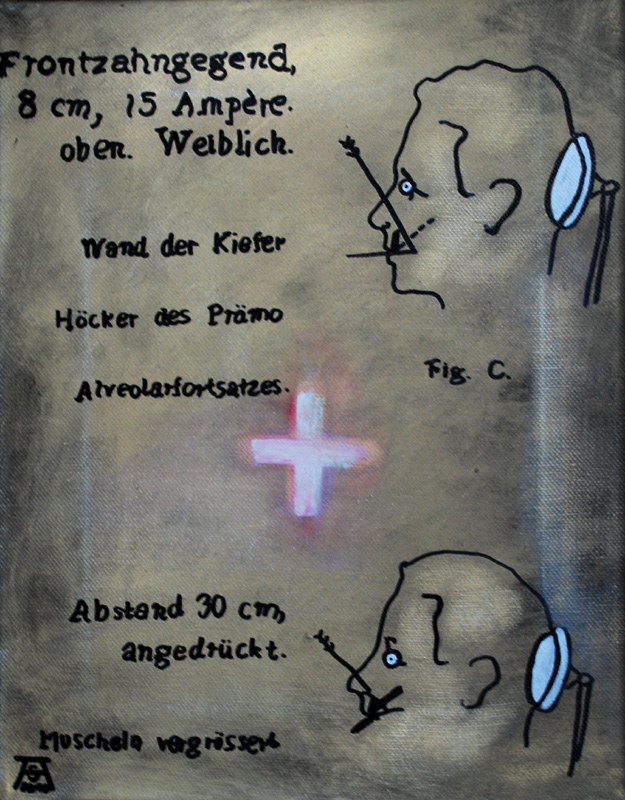 Frontzahngegend,
8 cm, 15 Ampère.
oben. Weiblich.
Wand der Kiefer
Höcker des Prämo
Alveolarfortsatzes.
Fig. C.
Abstand 30 cm,
angedrückt.
Muscheln vergrössert